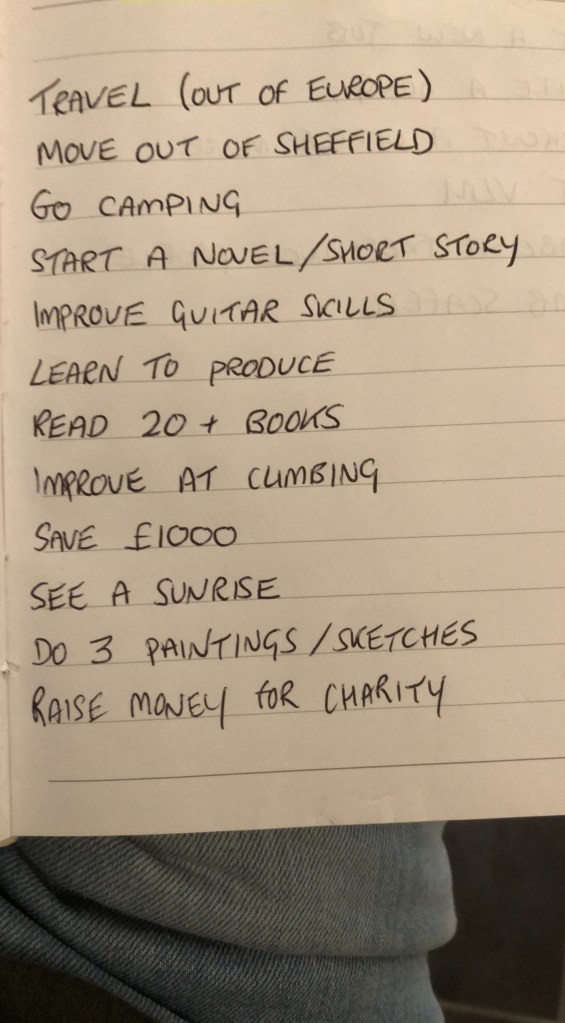 TRAVEL (OUT OF EUROPE)
MOVE OUT OF SHEFFIELD
GO CAMPING
START A NOVEL/SHORT STORY
IMPROVE GUITAR SKILLS
LEARN TO PRODUCE
READ 20+ BOOKS
IMPROVE AT CLIMBING
SAVE £1000
SEE A SUNRISE
DO 3 PAINTINGS/SKETCHES
RAISE MONEY FOR CHARITY